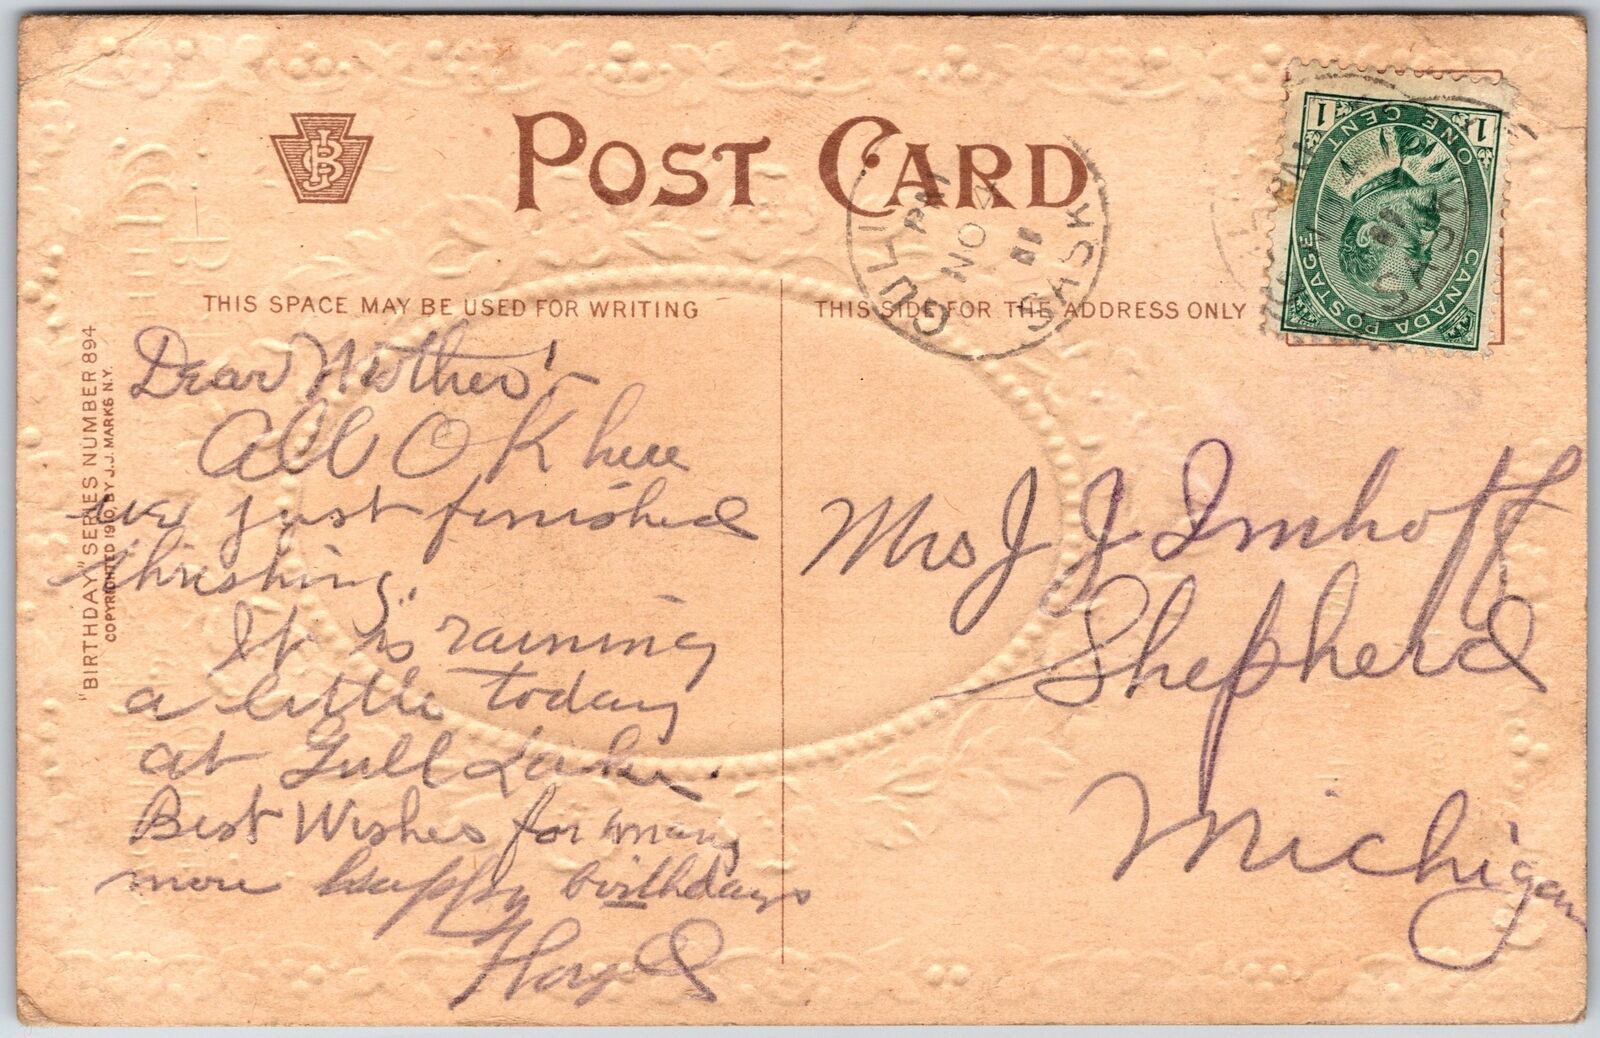 POST CARD
THIS SPACE MAY BE USED FOR WRITING
THIS SIDE FOR THE ADDRESS ONLY
"BIRTHDAY" SERIES NUMBER 894
COPYRIGHTED 1910, BY J.J. MARKS N.Y.
Dear Mother!-
All O K here
we just finished
threshing.
It is raining
a little today
at Gull Lake.
Best Wishes for many
more happy birthdays
GULL
PM
NO 4
11
SASK
CANADA POSTAGE
ONE CENT
1 1
SASK
Mrs J J Imhoff
Shepherd
Michigan